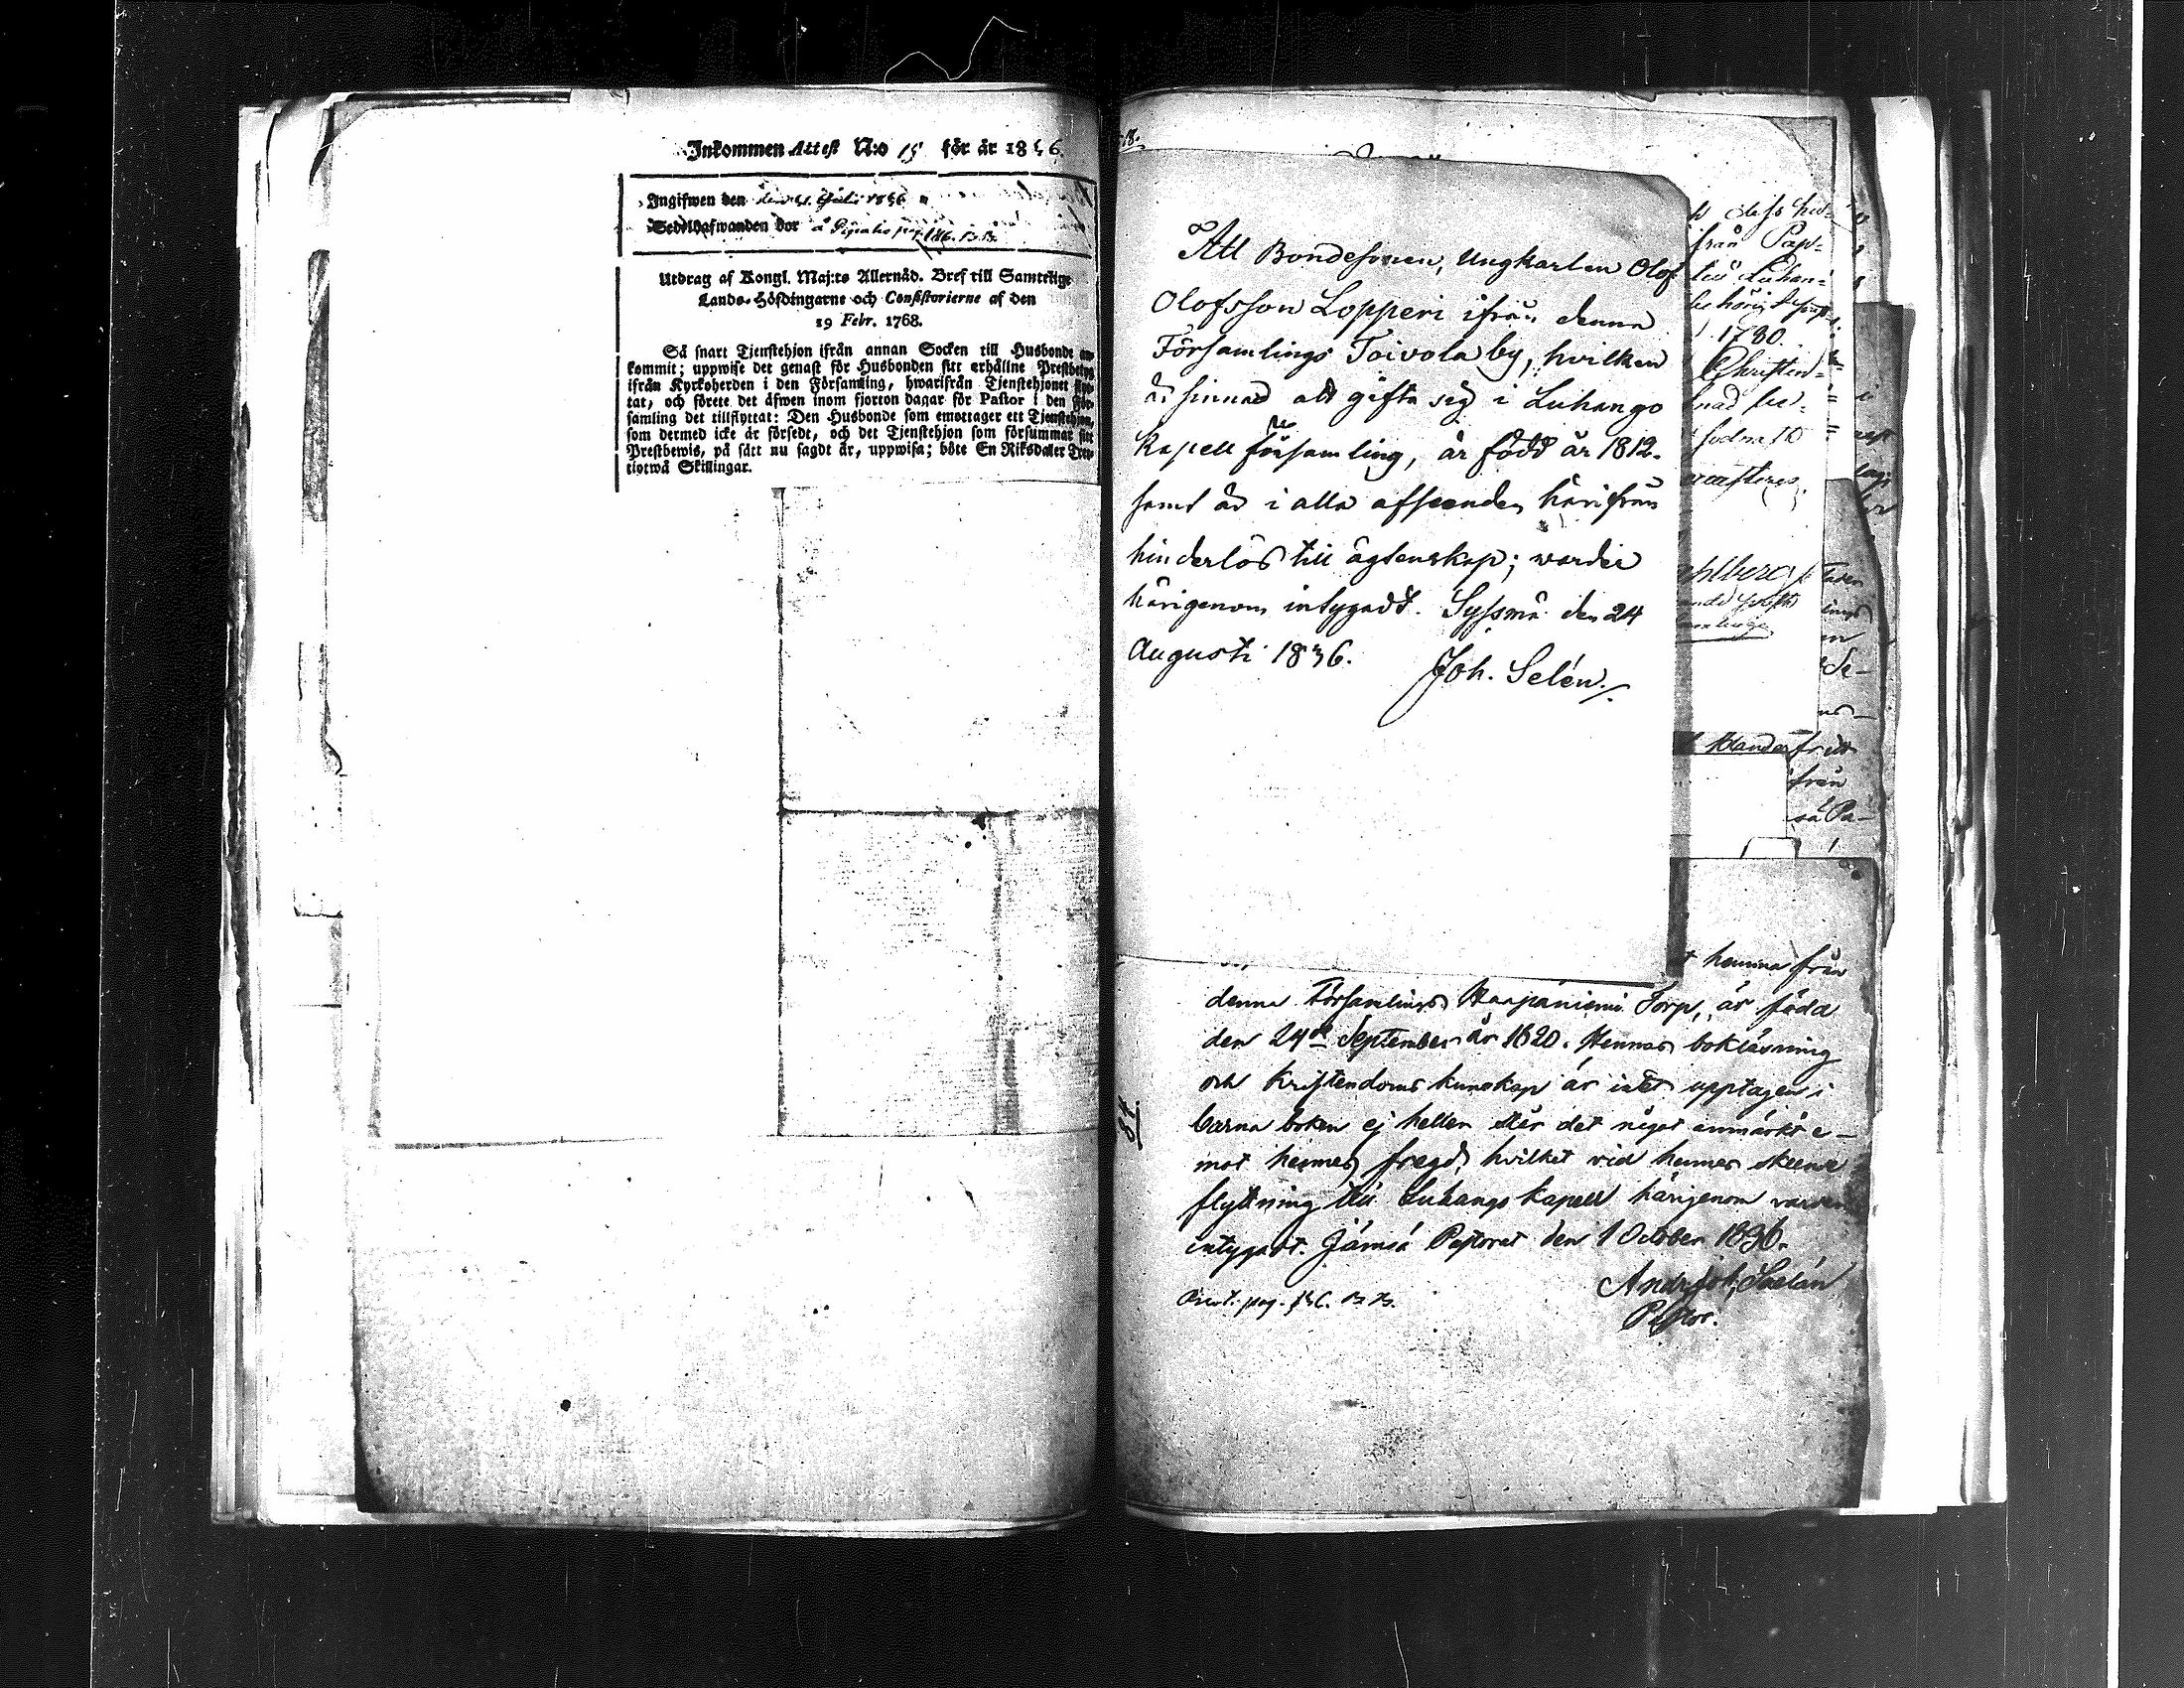 Inkommen Attest N:o 15 för år 1836.
Ingifwen den
Sedelhafwanden bor å
Utdrag af Kongl. Maj:ts Allernåd. Bref till Samtelige
Lands-Höfdingarne och Consistorierne af den
19 Febr. 1768.
Så snart Tjenstehjon ifrån annan Socken till Husbonde an-
kommit; uppwise det genast för Husbonden sitt erhållne Prestbetyg
ifrån Kyrkoherden i den Församling, hwarifrån Tjenstehjonet flyt-
tat, och förete det äfwen inom fjorton dagar för Pastor i den För-
samling det tillflyttat: Den Husbonde som emottager ett Tjenstehjon,
som dermed icke är försedt, och det Tjenstehjon som försummar sitt
Prestbewis, på sätt nu sagdt är, uppwisa; böte En Riksdaler Tret-
tiotwå Skillingar.
18.
Att Bondesonen, Ungkarlen Olof
Olofsson Lopperi ifrån denna
Församlings Toivola by, hvilken
är sinnad att gifta sig i Luhango
Kapell församling, är född år 1812.
samt är i alla afseenden härifrån
hinderlös till ägtenskap; warder
härigenom intygadt. Syssmä den 24
Augusti 1836. Joh. Selén.
från Pap=
1780.
Christen=
hemma från
denna Församlings Haapaniemi Torp, är föda
den 24de September år 1820. Hennas bokläsning
och Kristendoms kunskap är intet upptagen i
barna boken ej heller står det något anmärkt e-
mot hennes fregd, hvilket vid hennes skeende
flyttning till Luhango kapell härigenom varder
intygadt. Jämsä Pastorat den 1 October 1836.
Andr. Joh. Saelán
Pastor.
34
från